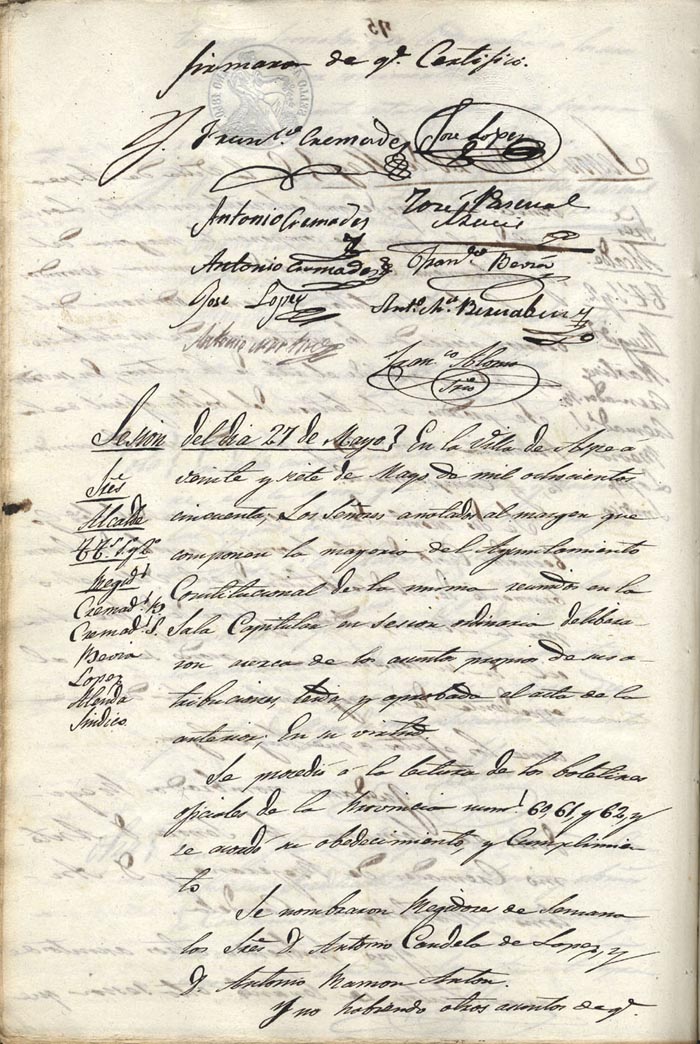 firmaron de qe. Certifico.
Franco. Cremades
José Lopez
Antonio Cremades
José Pascual
Antonio Cremades
Franco. Beviá
José Lopez
Anto. Ma. Bernabeu
Antonio Martinez
Franco. Alonso
Srio
Sesion del dia 27 de Mayo En la Villa de Aspe a
veinte y siete de Mayo de mil ochocientos
cincuenta; Los Señores anotados al margen que
componen la mayoria del Ayuntamiento
Constitucional de la misma reunidos en la
Sala Capitular en sesion ordinaria delibera-
ron acerca de los asuntos propios de sus a-
tribuciones, leida y aprobada el acta de la
anterior, En su virtud
Sres
Alcalde
TTes. 1º y 2º
Regids.
Cremads. R.
Cremads. S.
Bevia
Lopez
Alenda
Sindico
Se procedió á la lectura de los boletines
oficiales de la Provincia nums. 60, 61, y 62, y
se acordó su obedecimiento, y Cumplimien
to
Se nombraron Regidores de Semana
los Sres D. Antonio Candela de Lopez, y
D. Antonio Ramon Anton.
Y no habiendo otros asuntos de qe.